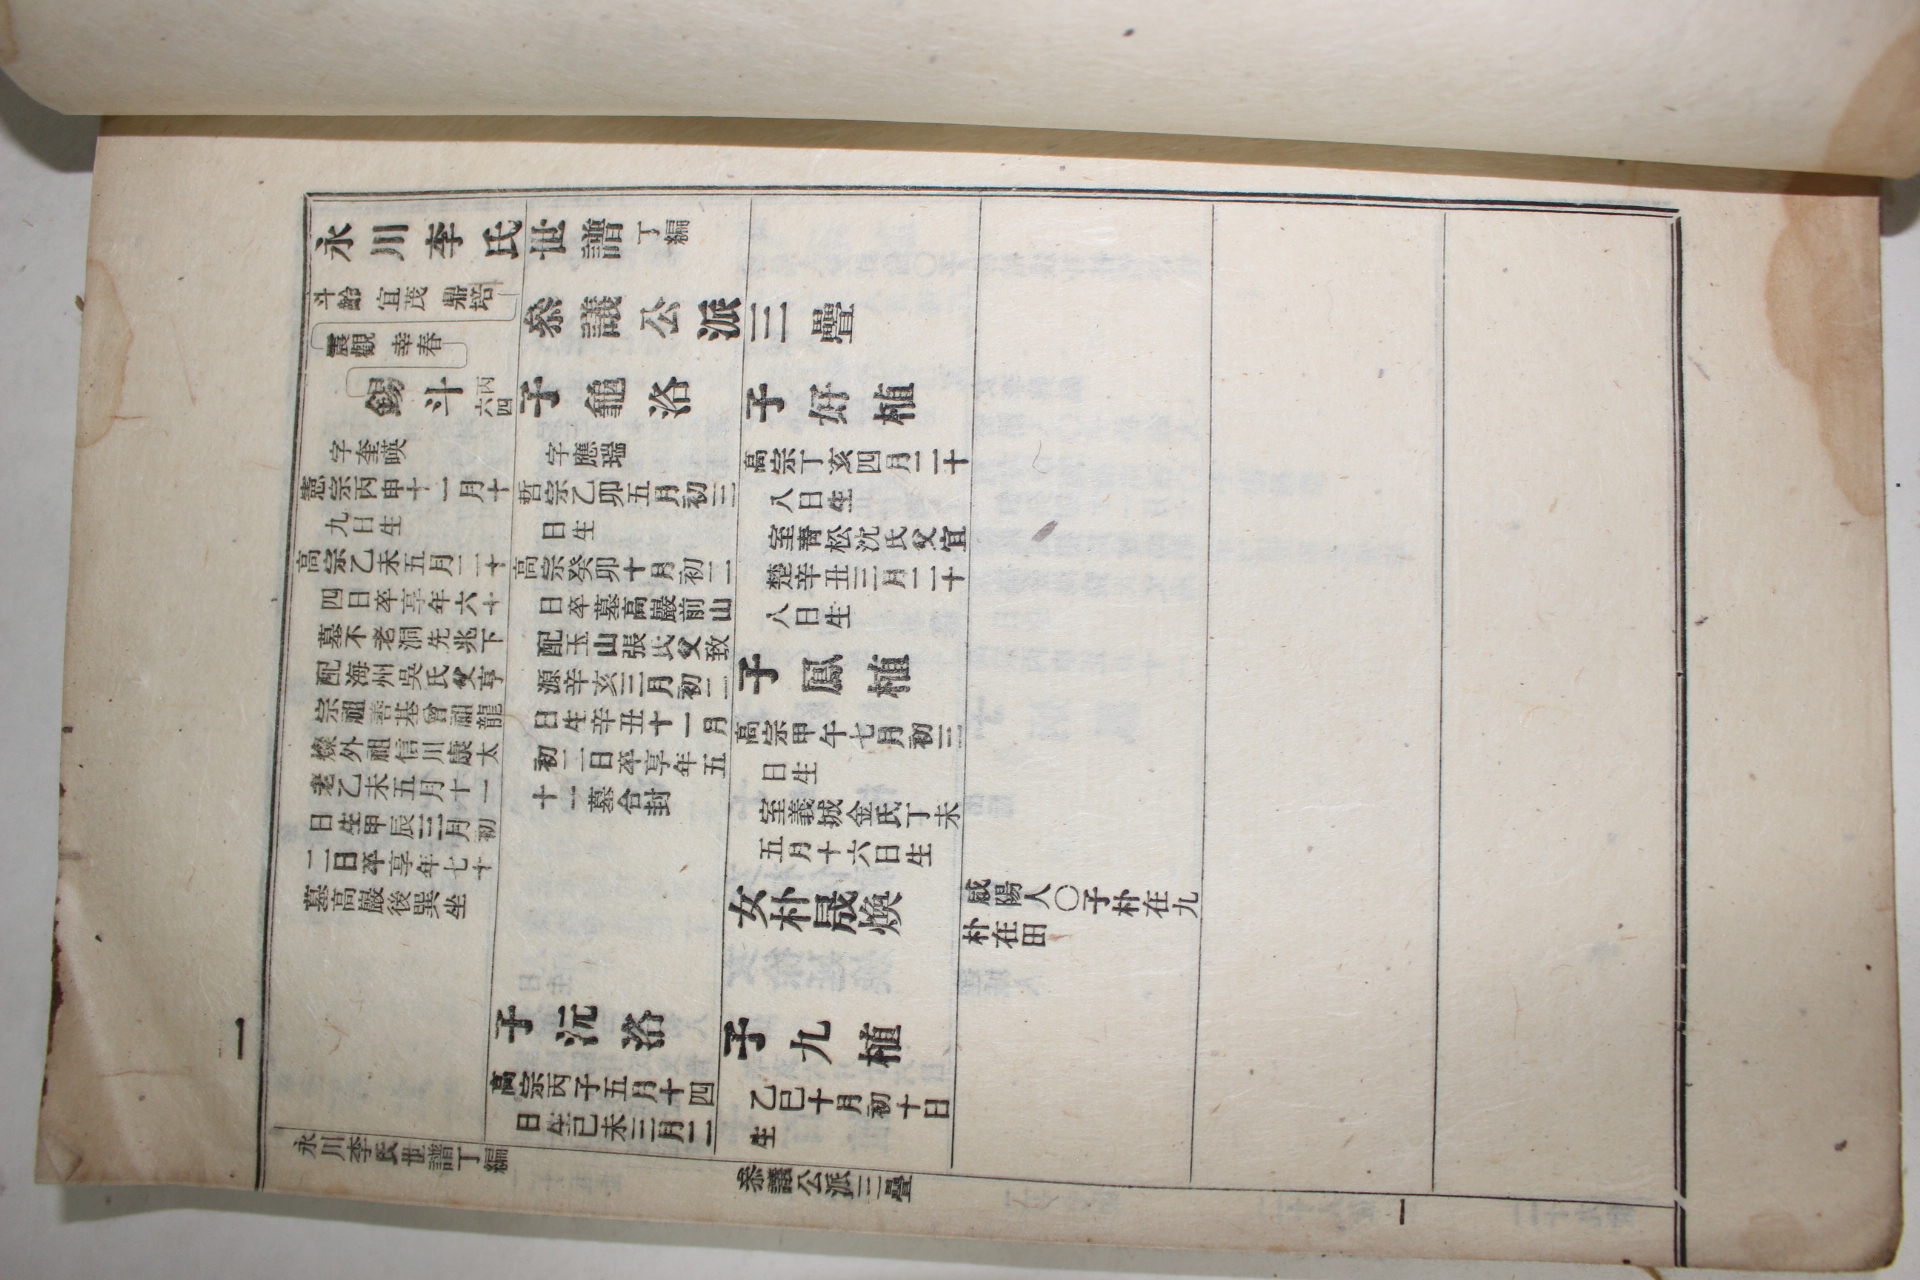 永川李氏世譜丁編
參議公派三疊
斗齡 宜茂 鼎培
震觀 幸春
錫斗 丙四六
字奎暎
憲宗丙申十一月十
九日生
高宗乙未五月二十
四日卒享年六十
墓不老洞先兆下
配海州吳氏父亨
宗祖善基曾祖龍
燦外祖信川康太
老乙未五月十一
日生甲辰三月初
二日卒享年七十
墓高巖後巽坐
子龜洛
字應瑞
哲宗乙卯五月初三
日生
高宗癸卯十月初二
日卒墓高巖前山
配玉山張氏父致
源辛亥三月初二
日生辛丑十一月
初二日卒享年五
十一墓合封
子沅洛
高宗丙子五月十四
日生己未三月二
子好植
高宗丁亥四月二十
八日生
室靑松沈氏父宜
楚辛丑三月二十
八日生
子鳳植
高宗甲午七月初三
日生
室義城金氏丁未
五月十六日生
女朴晟煥
咸陽人〇子朴在九
朴在田
子九植
乙巳十月初十日
生
永川李氏世譜丁編
參議公派三疊
一
一